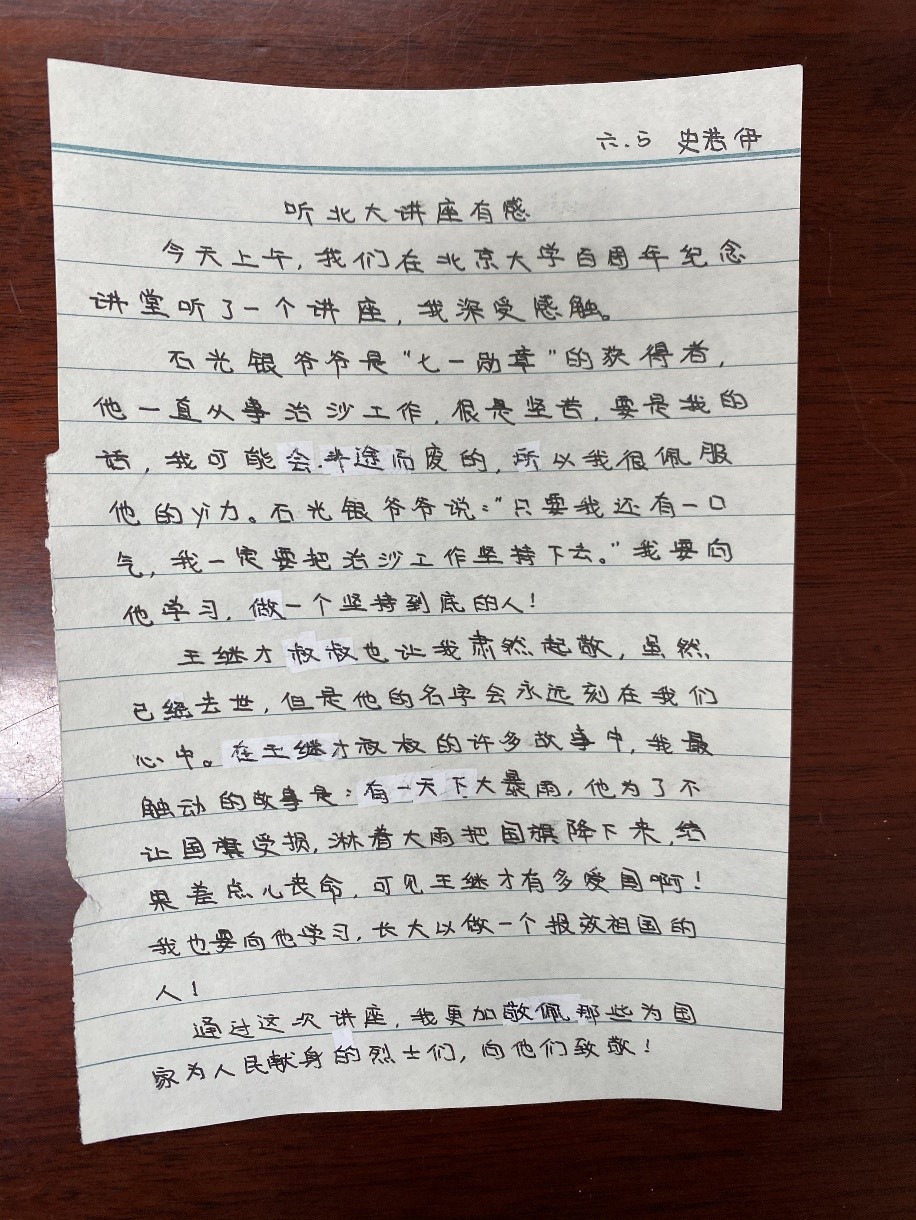 六.5 史浩伊
听北大讲座有感
今天上午,我们在北京大学百周年纪念
讲堂听了一个讲座,我深受感触。
石光银爷爷是“七一勋章”的获得者,
他一直从事治沙工作,很是坚苦,要是我的
话,我可能会半途而废的,所以我很佩服
他的yì力。石光银爷爷说:“只要我还有一口
气,我一定要把治沙工作坚持下去。”我要向
他学习,做一个坚持到底的人!
王继才叔叔也让我肃然起敬,虽然
已经去世,但是他的名字会永远刻在我们
心中。在王继才叔叔的许多故事中,我最
触动的故事是:有一天下大暴雨,他为了不
让国旗受损,淋着大雨把国旗降下来,结
果差点儿丧命,可见王继才有多爱国啊!
我也要向他学习,长大以做一个报效祖国的
人!
通过这次讲座,我更加敬佩那些为国
家为人民献身的烈士们,向他们致敬!